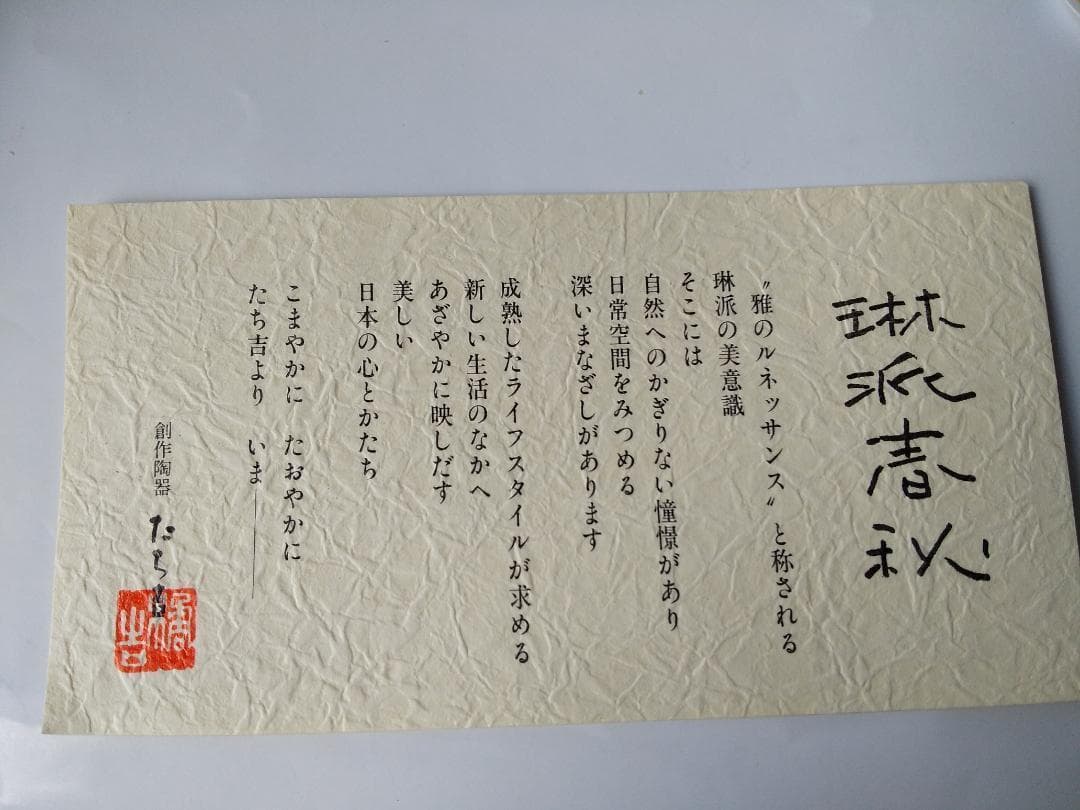 琳派春秋
〝雅のルネッサンス〟と称される
琳派の美意識
そこには
自然へのかぎりない憧憬があり
日常空間をみつめる
深いまなざしがあります
成熟したライフスタイルが求める
新しい生活のなかへ
あざやかに映しだす
美しい
日本の心とかたち
こまやかに　たおやかに
たち吉より　いま――
創作陶器 たち吉
橘吉